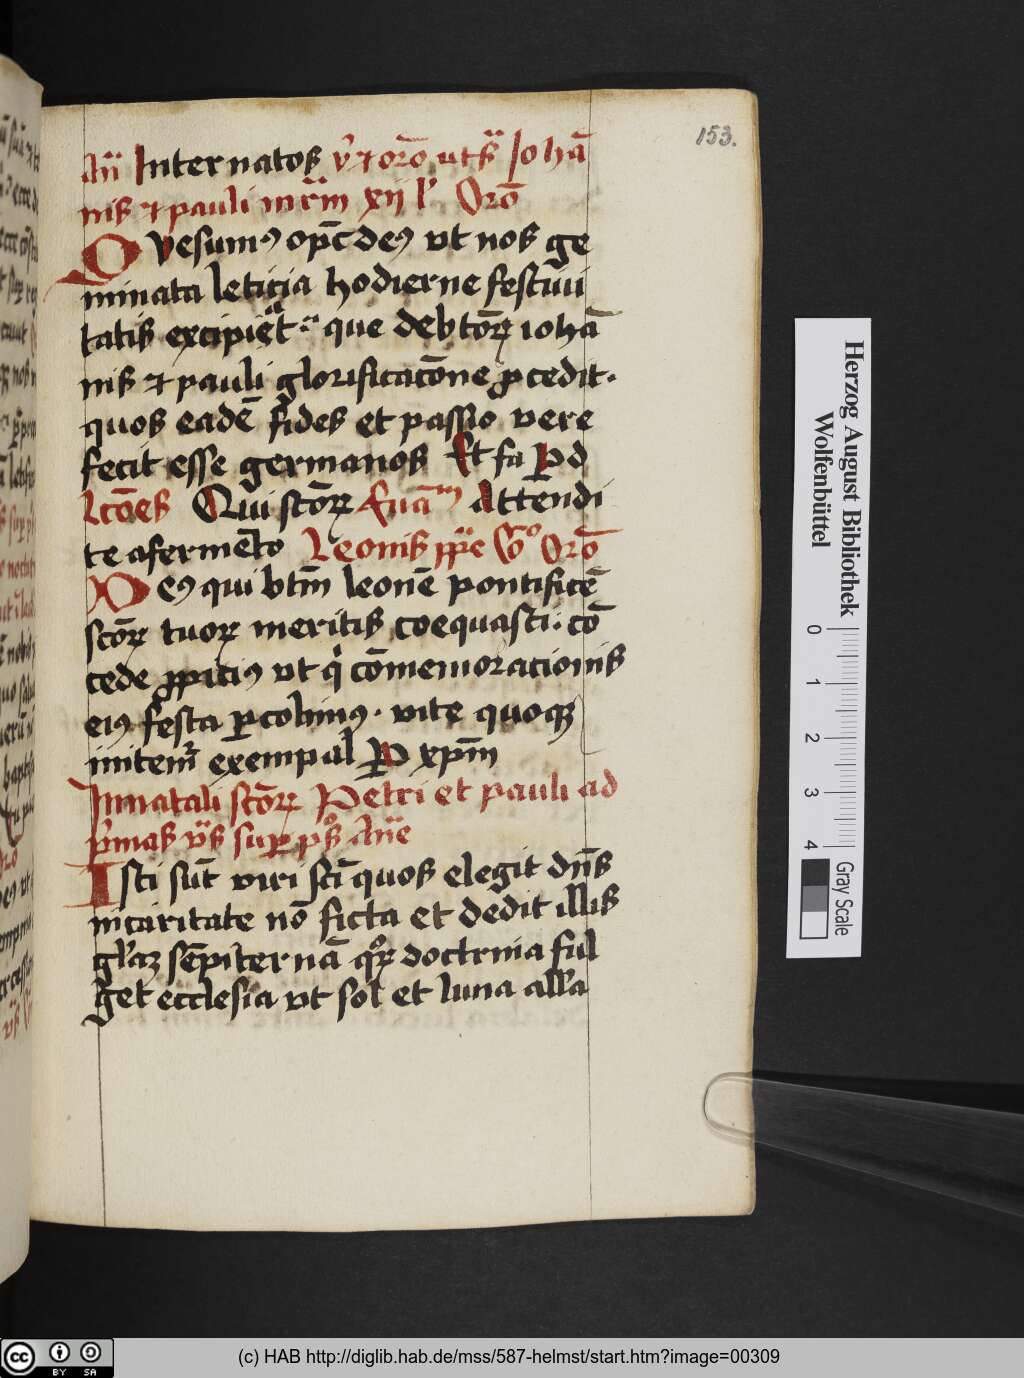 153.
Añ Internatos v̉ ⁊ orō uts̃ Johā
nis ⁊ pauli mr̄m xij lˀ Orō
Qvesumꝰ opc̄ deꝰ vt nos ge
minata leticia hodierne festiui
tatis excipiāt que debtōꝝ iohā
nis ⁊ pauli glorificacōne ꝓcedit.
quos eadē fides et passio vere
fecit esse germanos Et fa P d
Lcōes Qui scōꝝ Euām Attendi
te a fermēto Leonis ppe Orō
Deꝰ qui btm̄ leonē pontificē
scōꝝ tuoꝝ meritis coequasti. cō
cede ꝓpiciꝰ vt q̉ cōmemoracionis
eiꝰ festa ꝑcolimꝰ. vite quoqꝫ
imitemˀ exempal P xpm̄
Innatali scōꝝ Petri et pauli ad
p̉mas vs̄ suꝑ ps̄ Añe
Isti sūt viri scī quos elegit dn̄s
in caritate nō ficta et dedit illis
gl̉aꝫ sēpiternā qꝝ doctrnia ful
get ecclesia vt sol et luna all̉a
Herzog August Bibliothek
Wolfenbüttel
0
1
2
3
4
Gray Scale
cc BY SA
(c) HAB http://diglib.hab.de/mss/587-helmst/start.htm?image=00309